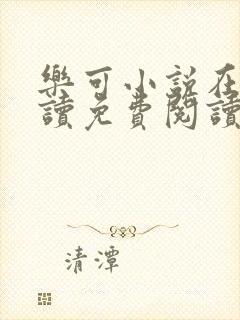 樂可小說在
讀免費閱讀
清潭